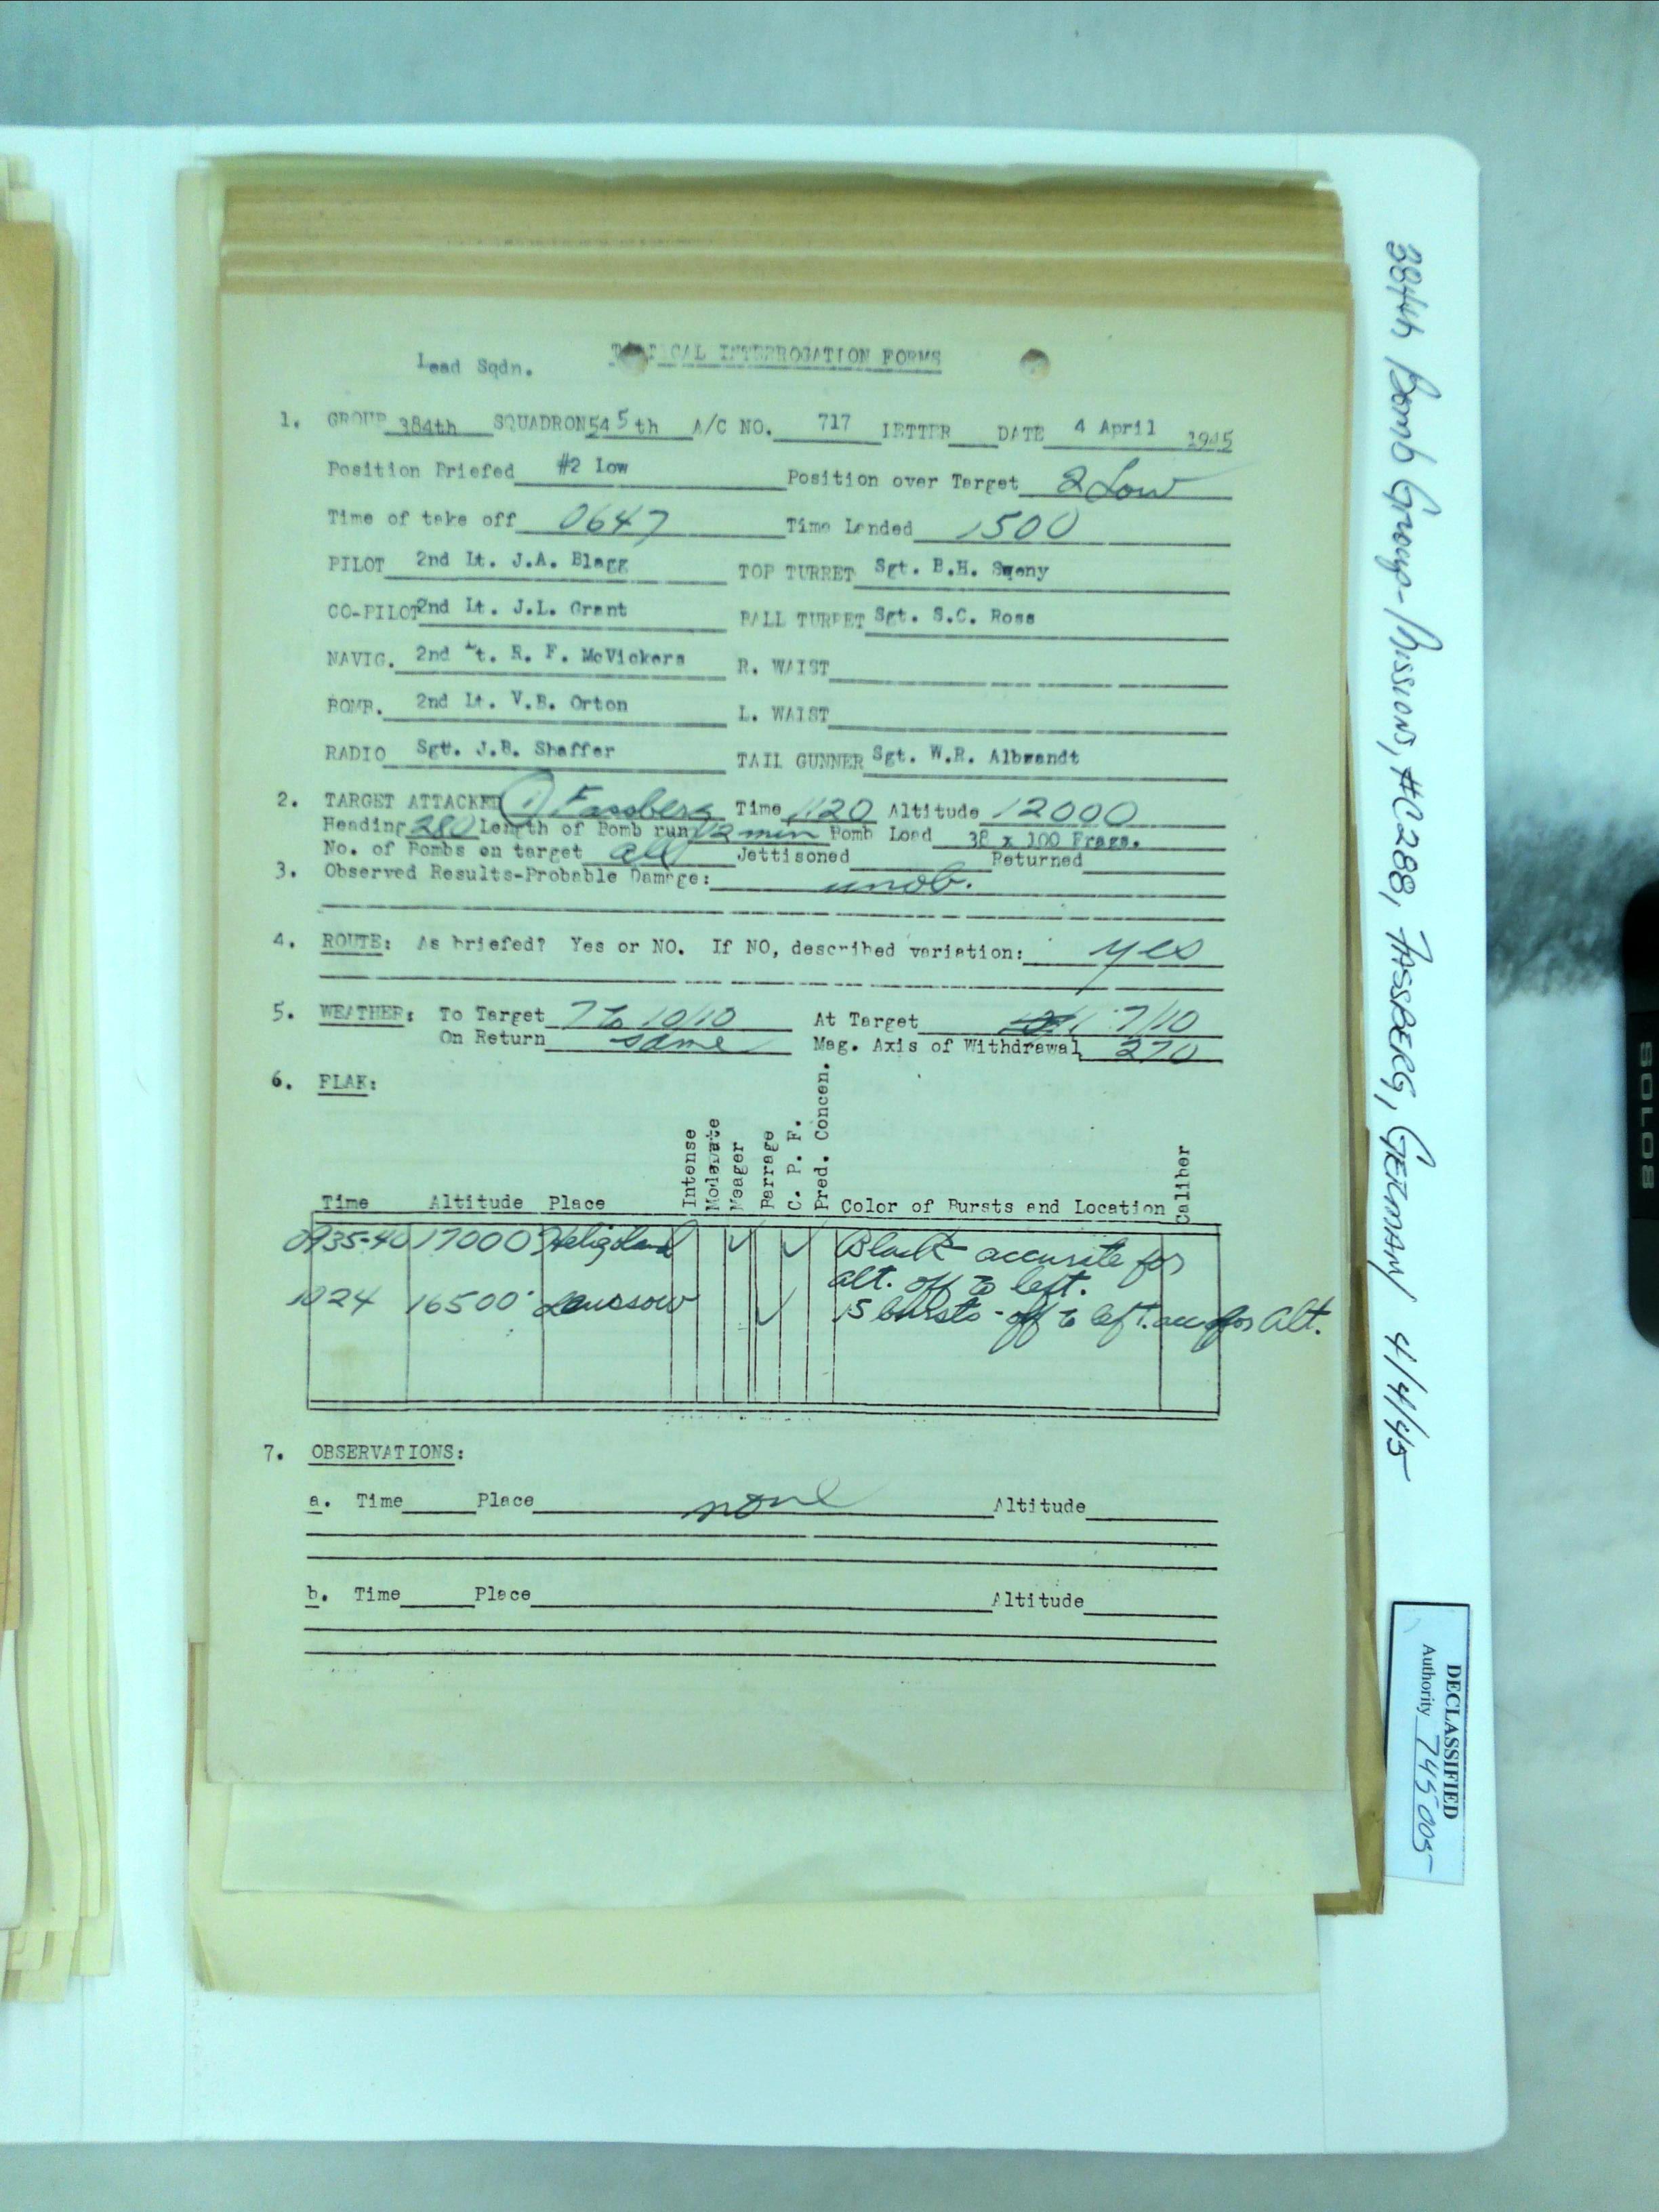 Lead Sqdn.
TACTICAL INTERROGATION FORMS
1. GROUP 384th SQUADRON 545th A/C NO. 717 LETTER DATE 4 April 1945
Position Briefed #2 Low Position over Target 2 Low
Time of take off 0647 Time Landed 1500
PILOT 2nd Lt. J.A. Blagg TOP TURRET Sgt. B.H. Sweny
CO-PILOT 2nd Lt. J.L. Grant BALL TURRET Sgt. S.C. Ross
NAVIG. 2nd Lt. R. F. McVickers R. WAIST
BOMB. 2nd Lt. V.B. Orton L. WAIST
RADIO Sgt. J.B. Shaffer TAIL GUNNER Sgt. W.R. Albrandt
2. TARGET ATTACKED (1) Fassberg Time 1120 Altitude 12000
Heading 280 Length of Bomb run 12 min Bomb Load 38 x 100 Frags.
No. of Bombs on target all Jettisoned Returned
3. Observed Results-Probable Damage: unob.
4. ROUTE: As briefed? Yes or NO. If NO, described variation: yes
5. WEATHER: To Target 7 to 10/10 At Target 7/10
On Return same Mag. Axis of Withdrawal 270
6. FLAK:
Time Altitude Place Intense Moderate Meager Barrage C. P. F. Pred. Concen. Color of Bursts and Location Caliber
0935-40 17000 Heligoland ✓ ✓ Black accurate for
alt. off to left.
1024 16500' ✓ 15 bursts - off to left. acc for alt.
7. OBSERVATIONS:
a. Time Place none Altitude
b. Time Place Altitude
384th Bomb Group-Missions, #C288, FASSBERG, GERMANY 4/4/45
DECLASSIFIED
Authority 745005
SOLO8